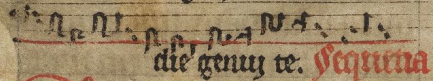 die genuj te. Sequentia